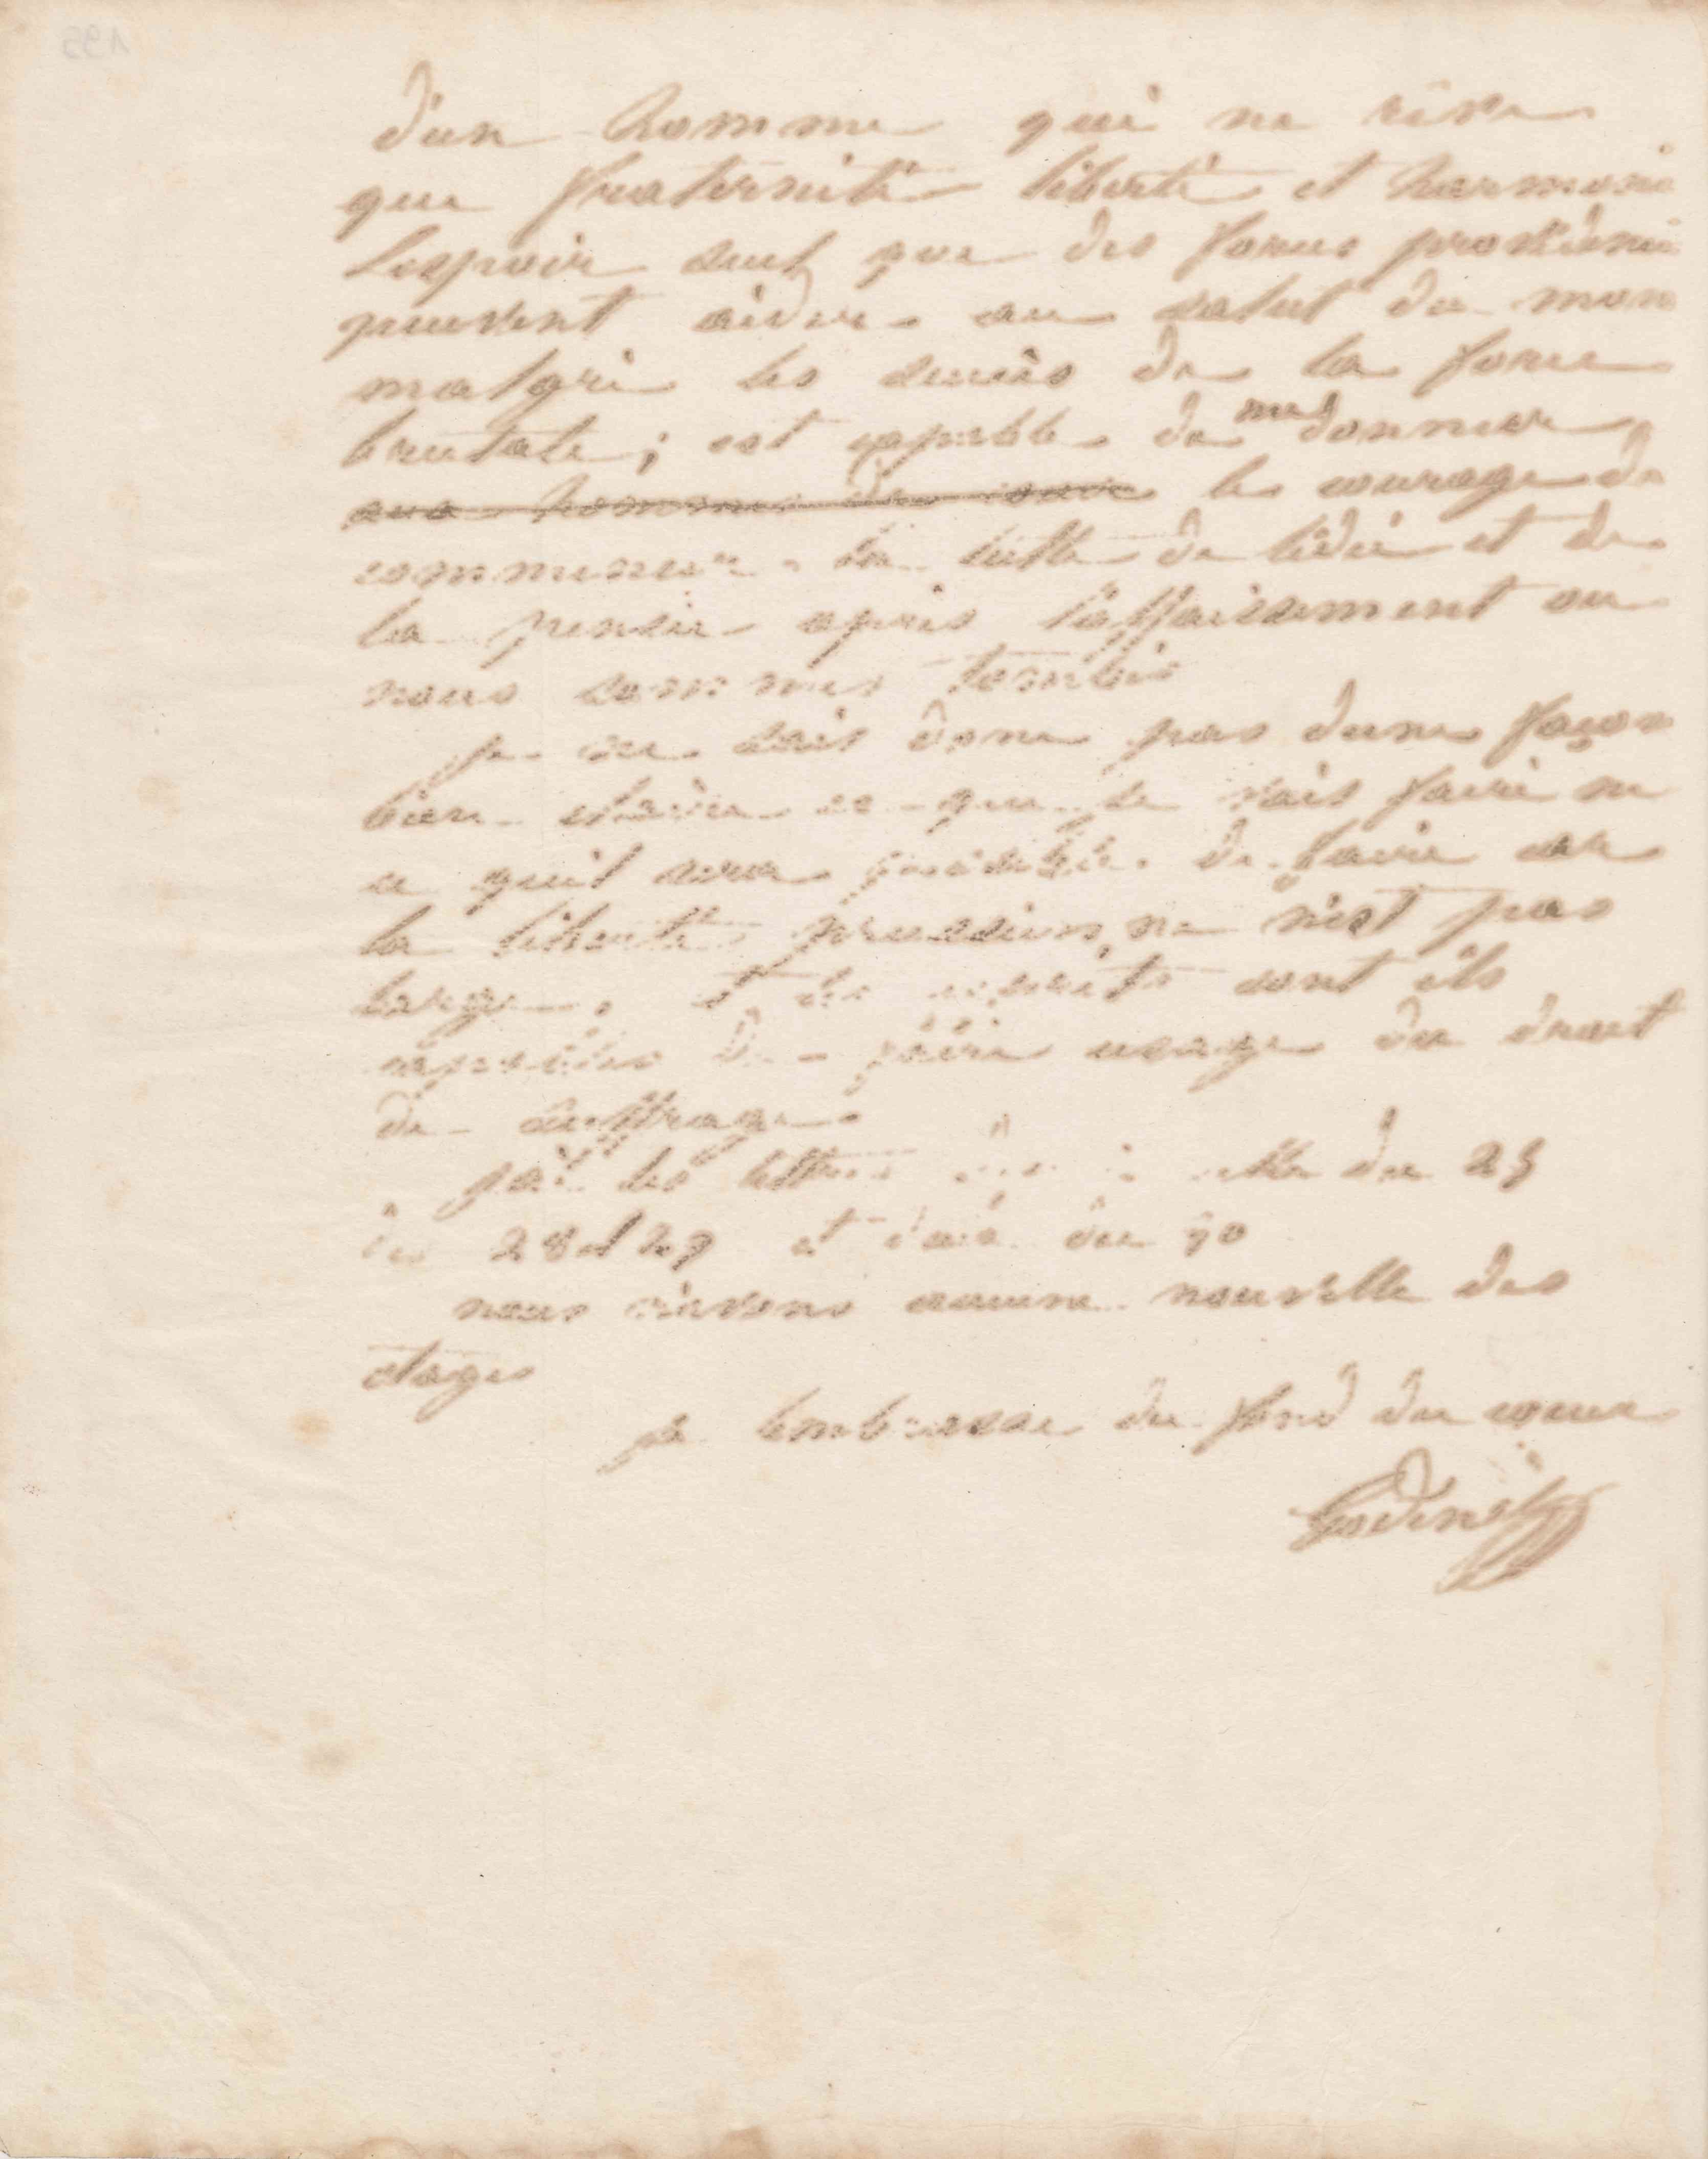 d'un homme qui ne rêve
que fraternité liberté et harmonie
lespoir seul que des forces providenci
peuvent aider au salut du mon
malgré les succès de la force
brutale ; est capable de me donner
aux hommes de le courage de
commencer la lutte de lidée et de
la pensée après l'affaissement ou
nous sommes tombés
je ne sais donc pas dune façon
bien claire ce que je vais faire ni
ce quil sera possible de faire car
la liberté prussienne n'est pas
large, et les esprits sont ils
capables de faire usage du droit
de suffrage.
j'ai les lettres celle du 25
des 28 et 29 et du 30
nous n'avons aucune nouvelle des
otages
je t'embrasse du fond du cœur
Godin